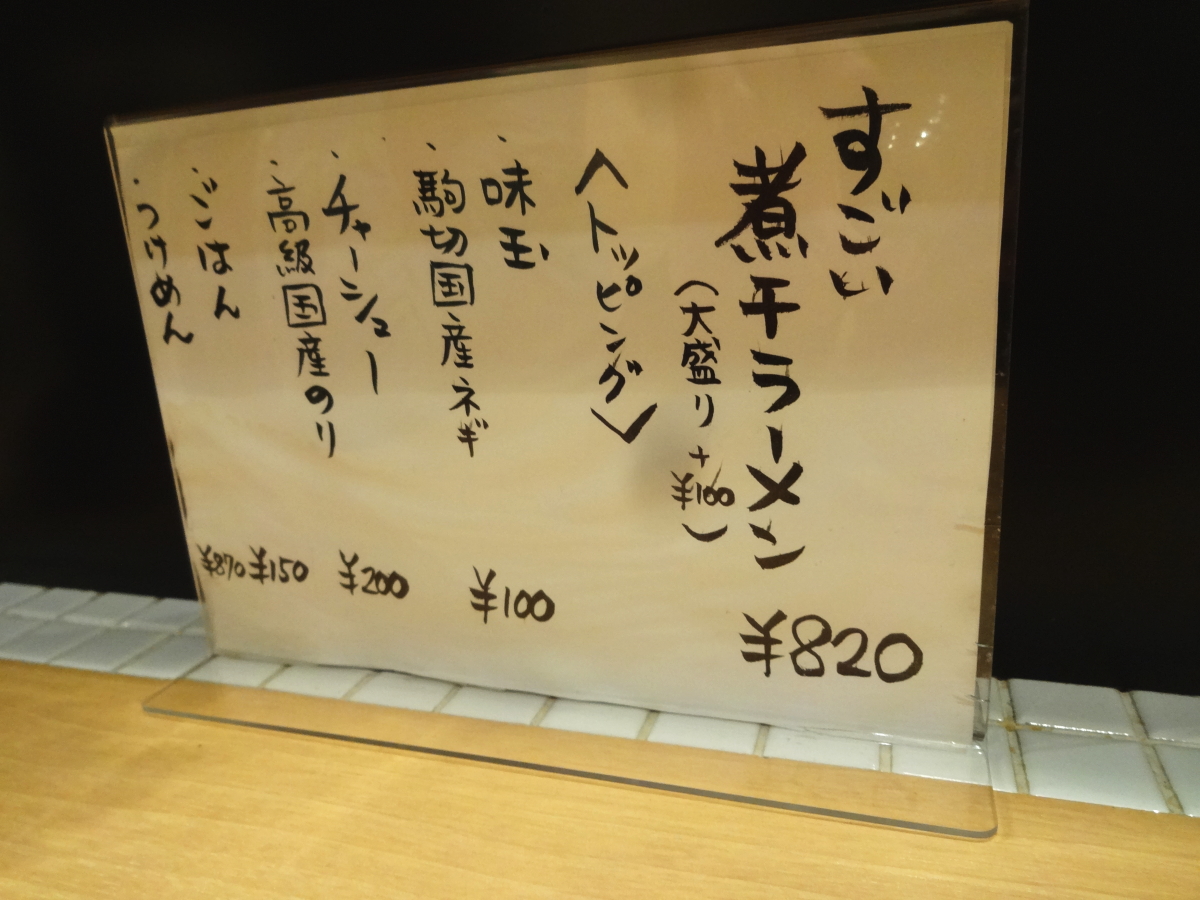 すごい
煮干ラーメン ¥820
(大盛り+¥100)
〈トッピング〉
・味玉 ¥100
・駒切国産ネギ
・チャーシュー ¥200
・高級国産のり
・ごはん ¥150
・つけめん ¥870